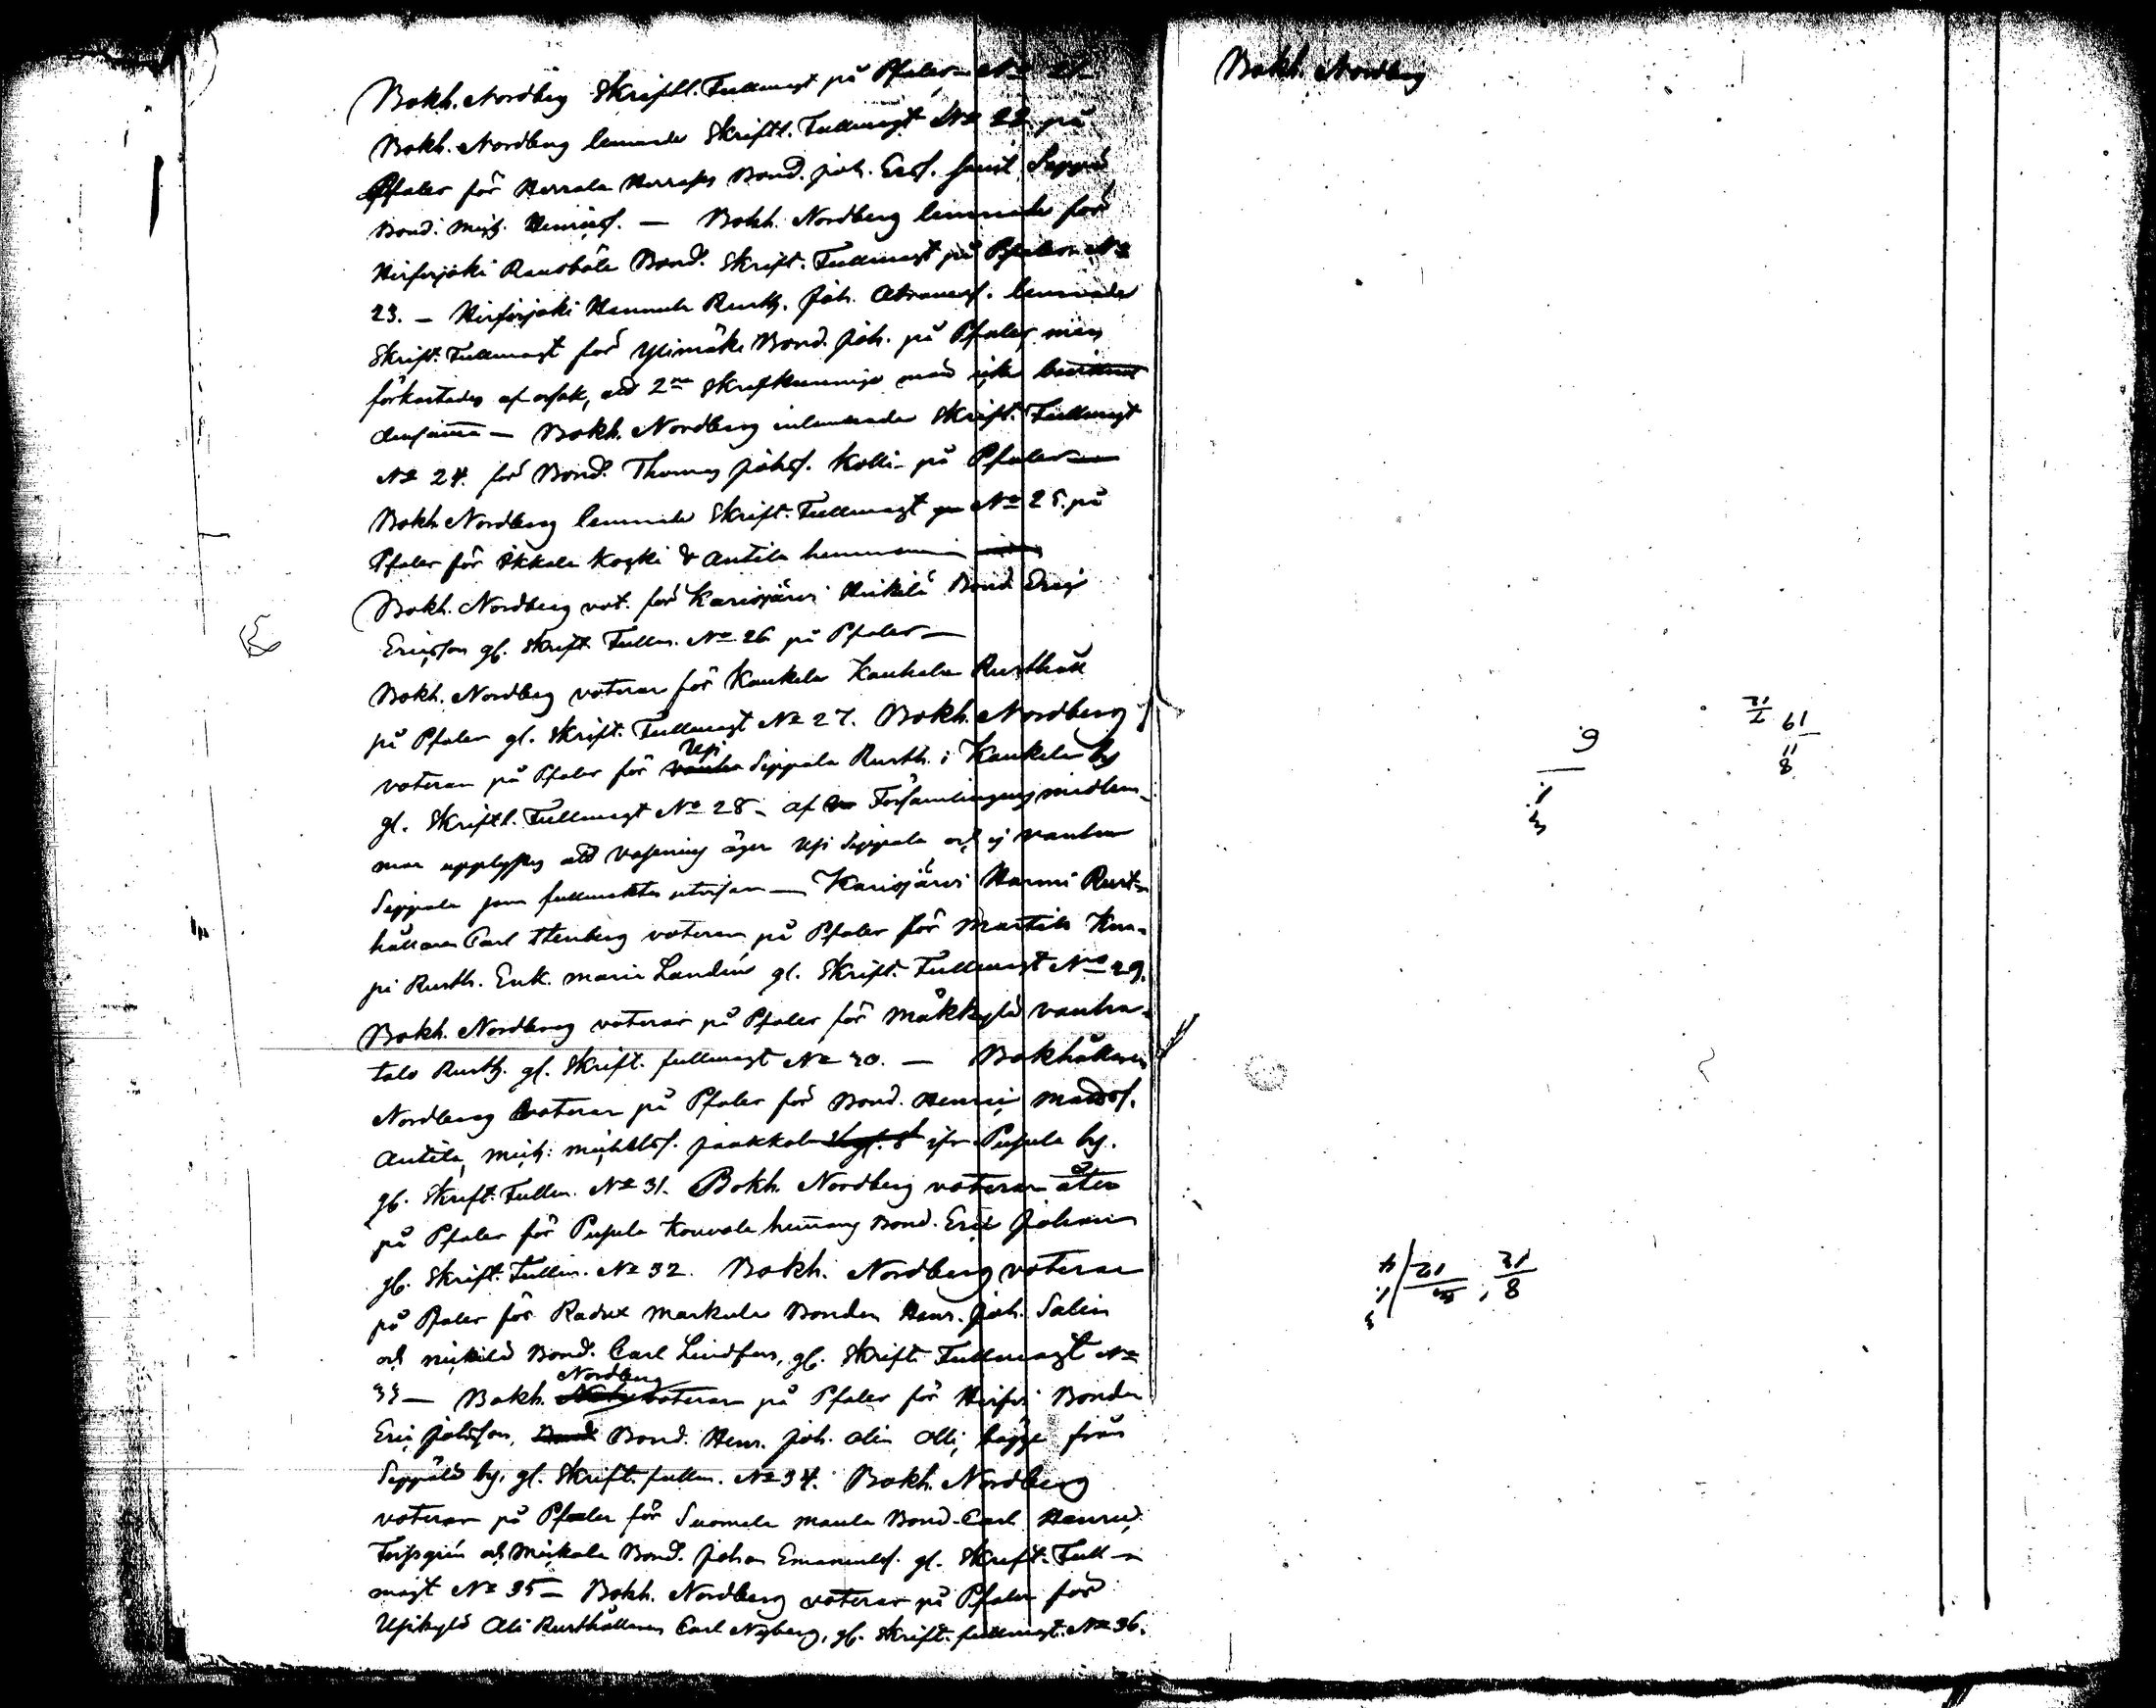 Bokh. Nordberg Skriftl. Fullmagt på Pfaler No 21
Bokh. Nordberg lemnade Skriftl. Fullmagt No 22 på
Pfaler för Herrala Bond. Joh. Ersf. samt Seppäl
Bond. Mich. Henricsf. — Bokh. Nordberg lemnade för
Hirsijoki Bond. Skrift. Fullmagt på Pfaler No
23. — Hirsijoki Hannula Rusth. Joh. lemnade
Skrift. Fullmagt för Ylimäki Bond. Joh. på Pfaler, men
förkastades af orsak, att 2ne Skrifkunnige män icke
densamma — Bokh. Nordberg inlemnade Skrift. Fullmagt
No 24. för Bond. Thomas Johsf. Kolli på Pfaler —
Bokh Nordberg lemnade Skrift. Fullmagt No 25. på
Pfaler för Ikkala Koski & Antila hemman
Bokh. Nordberg vot. för Karisjärvi Heikilä Bond. Eric
Ericsson gl. Skrift Fullm. No 26 på Pfaler —
Bokh. Nordberg voterar för Kaukela Kaukola Rusthåll
på Pfaler gl. Skrift. Fullmagt No 27. Bokh. Nordberg
voterar på Pfaler för Usi Seppala Rusth. i Kaukela by
gl. Skriftl. Fullmagt No 28 — af Församlingens medlem-
mar upplystes att äger Usi Seppala och ej vanha
Seppala som fullmakten utvisar — Karisjärvi Hannu Rust-
hållaren Carl Stenberg voterar på Pfaler för Martila Knu-
pi Rusth. Enk. Maria Landén gl. Skrift. Fullmagt No 29.
Bokh. Nordberg voterar på Pfaler för Mäkkylä vanha-
talo Rusth. gl. Skrift. fullmagt No 30. — Bokhållaren
Nordberg voterar på Pfaler för Bond. Henric Mattsf.
Antila, Mich. Michelsf. Jaakkola ifr. Pusula by.
gl. Skrift. Fullm. No 31. Bokh. Nordberg voterar åter
på Pfaler för Pusula Kouvola hemans Bond. Eric Johan
gl. Skrift. Fullm. No 32. Bokh. Nordberg voterar
på Pfaler för Radus Markula Bonden Henr. Joh. Salin
och Mickilä Bond. Carl Lindfors, gl. Skrift. Fullmagt No
33 — Bokh. Nordberg voterar på Pfaler för Hirsi Bonden
Eric Johsson, Bond. Henr. Joh. Olin Olli, bägge från
Seppälä by, gl. Skrift. fullm. No 34. Bokh. Nordberg
voterar på Pfaler för Suomela Maula Bond. Carl Henric
Forsgrén och Mickala Bond. Johan Emanuelsf. gl. Skrift. Full-
magt No 35 — Bokh. Nordberg voterar på Pfaler för
Usikylä Ali Rusthållaren Carl Nyberg, gl. Skrift. fullmagt. No 36.
Bokh. Nordberg